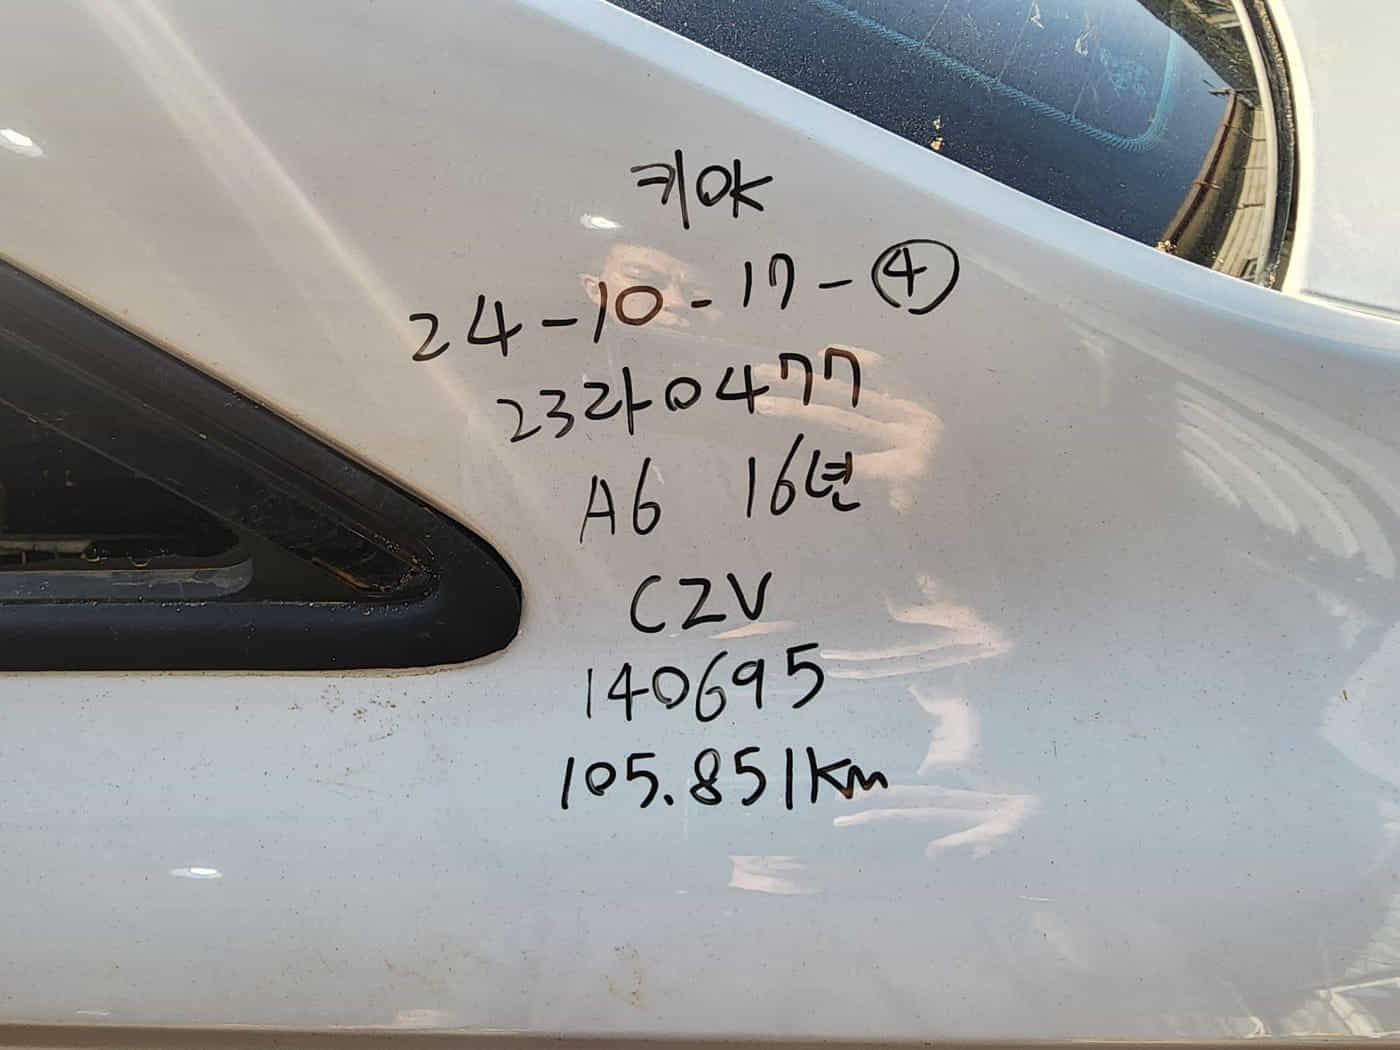 키OK
24-10-17-④
23라0477
A6 16년
CZV
140695
105.851Km